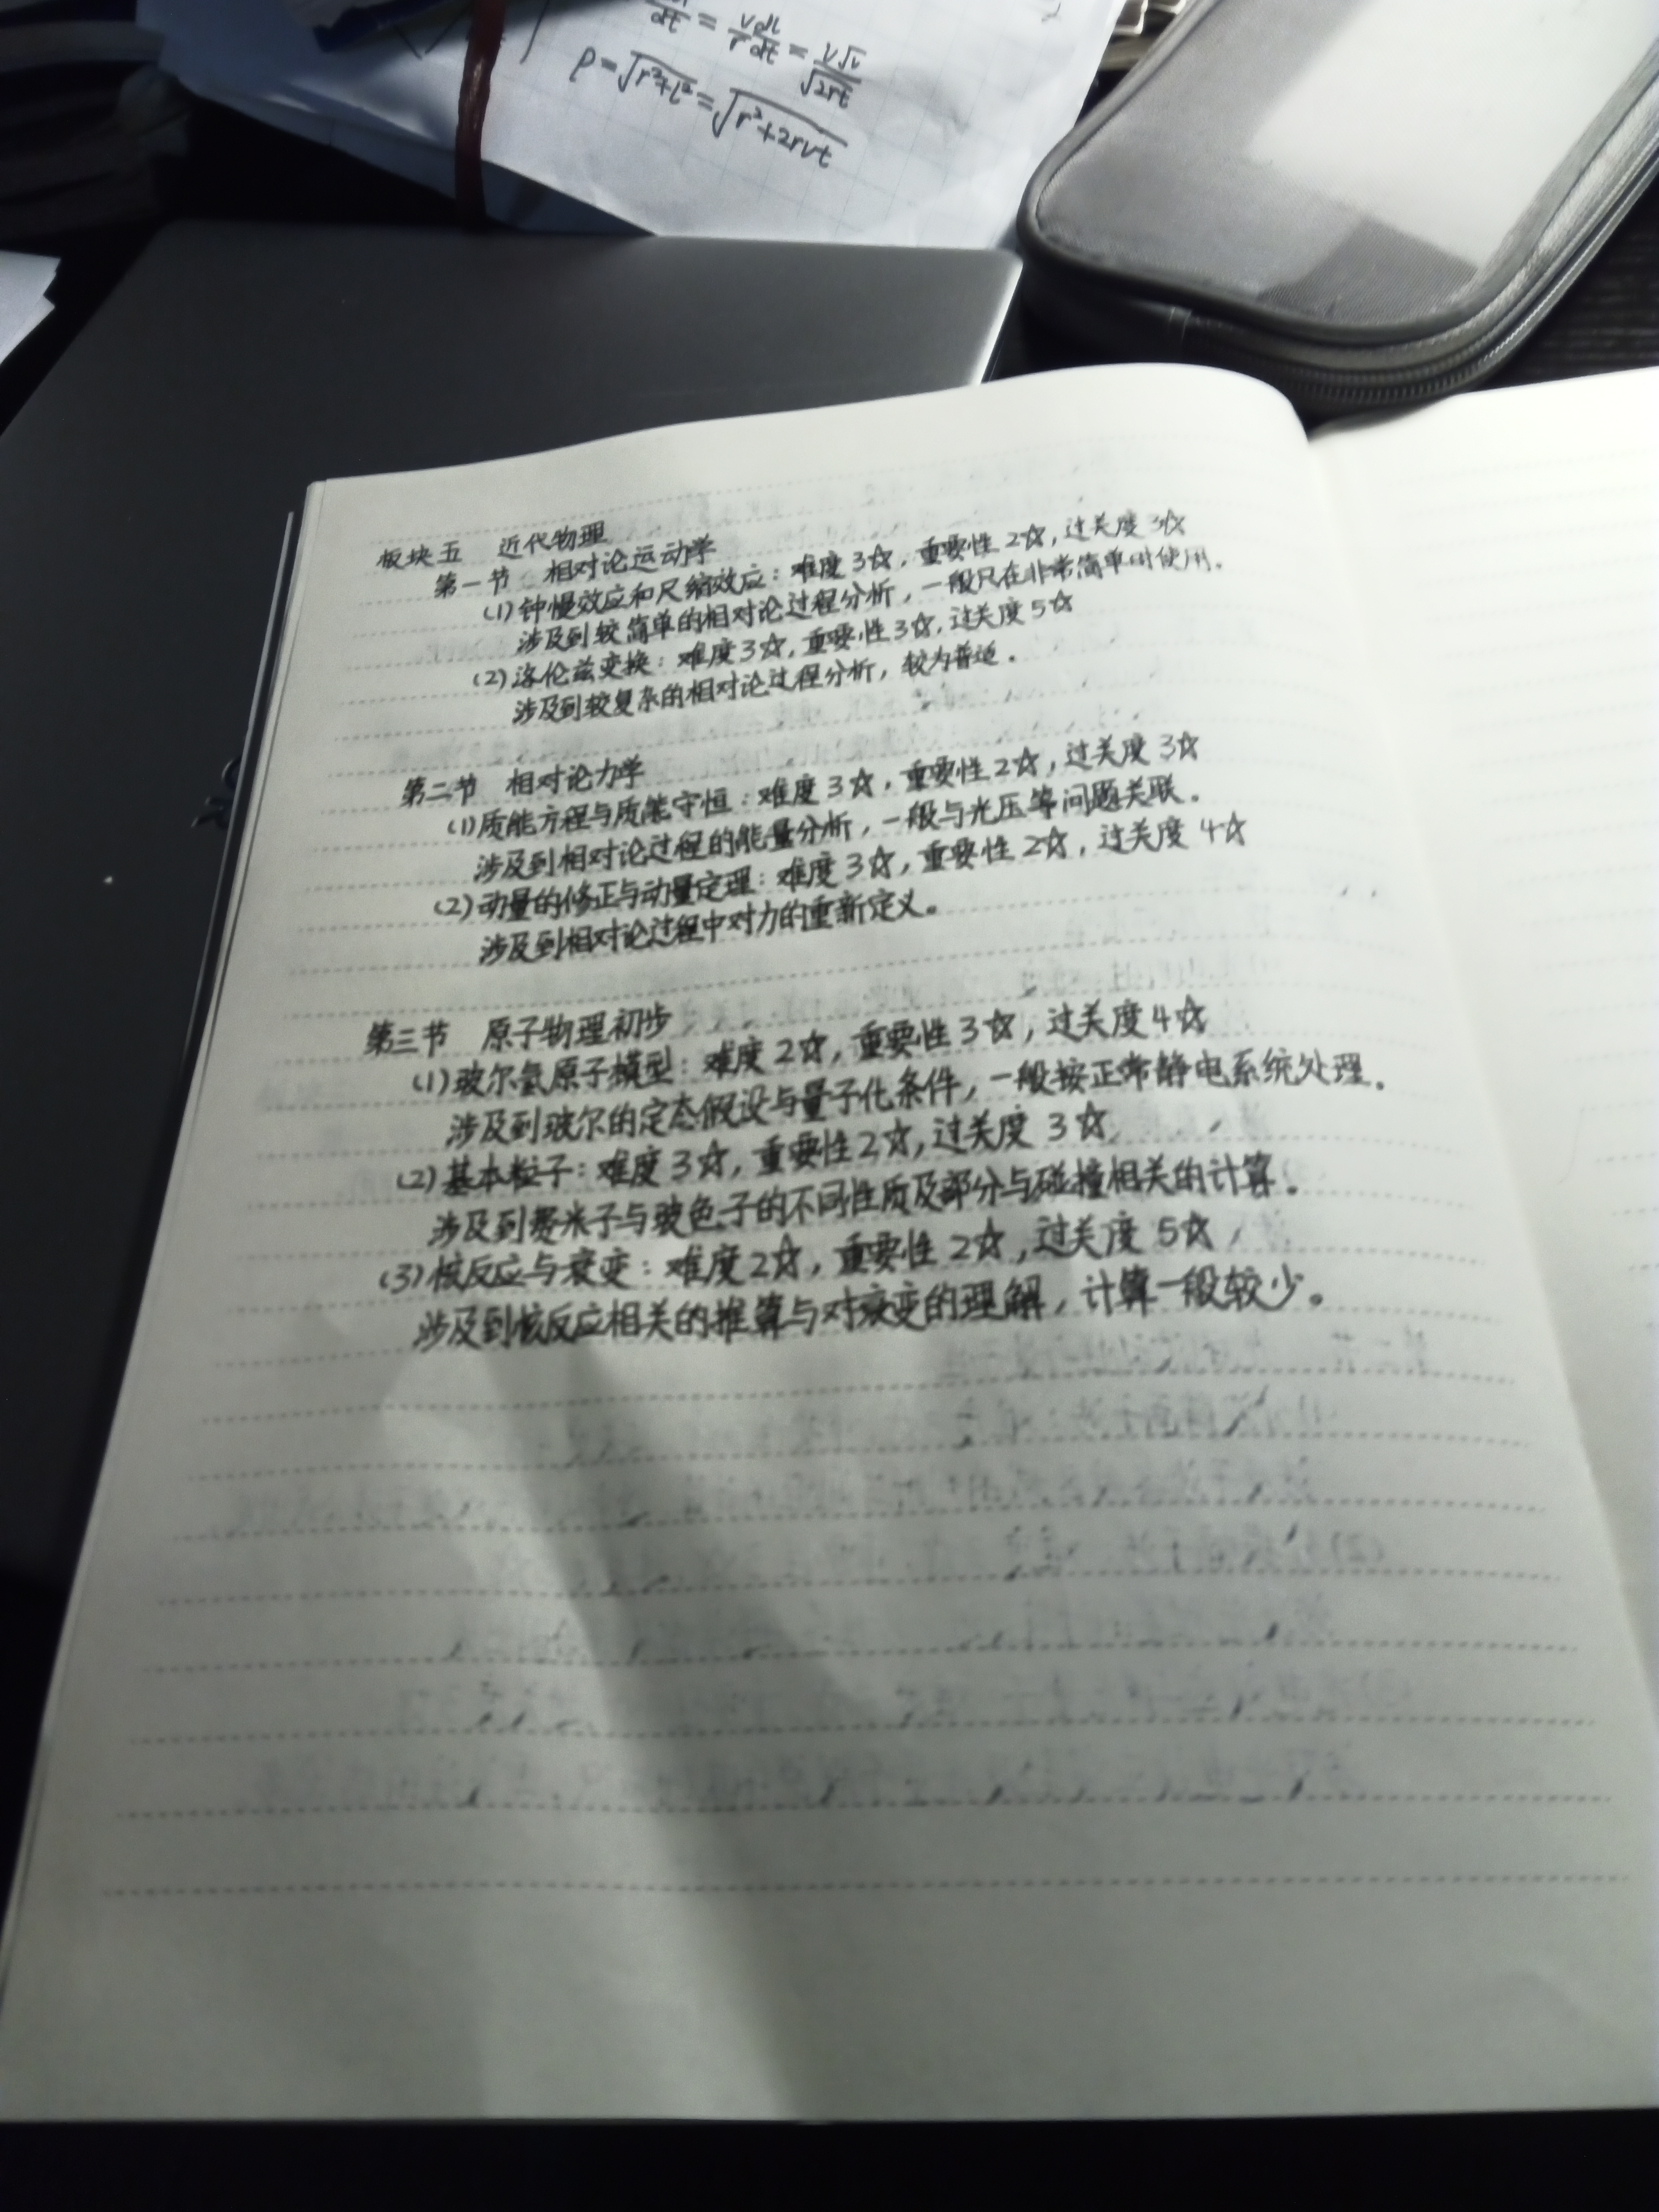 dt = v dl / r dt = v√v / √2rt
ρ = √r²+l² = √r²+2rvt
板块五 近代物理
第一节 相对论运动学
(1)钟慢效应和尺缩效应：难度3☆，重要性2☆，过关度3☆
涉及到较简单的相对论过程分析，一般只在非常简单时使用。
(2)洛伦兹变换：难度3☆，重要性3☆，过关度5☆
涉及到较复杂的相对论过程分析，较为普适。
第二节 相对论力学
(1)质能方程与质能守恒：难度3☆，重要性2☆，过关度3☆
涉及到相对论过程的能量分析，一般与光压等问题关联。
(2)动量的修正与动量定理：难度3☆，重要性2☆，过关度4☆
涉及到相对论过程中对力的重新定义。
第三节 原子物理初步
(1)玻尔氢原子模型：难度2☆，重要性3☆，过关度4☆
涉及到玻尔的定态假设与量子化条件，一般按正常静电系统处理。
(2)基本粒子：难度3☆，重要性2☆，过关度3☆
涉及到费米子与玻色子的不同性质及部分与碰撞相关的计算。
(3)核反应与衰变：难度2☆，重要性2☆，过关度5☆
涉及到核反应相关的推算与对衰变的理解，计算一般较少。